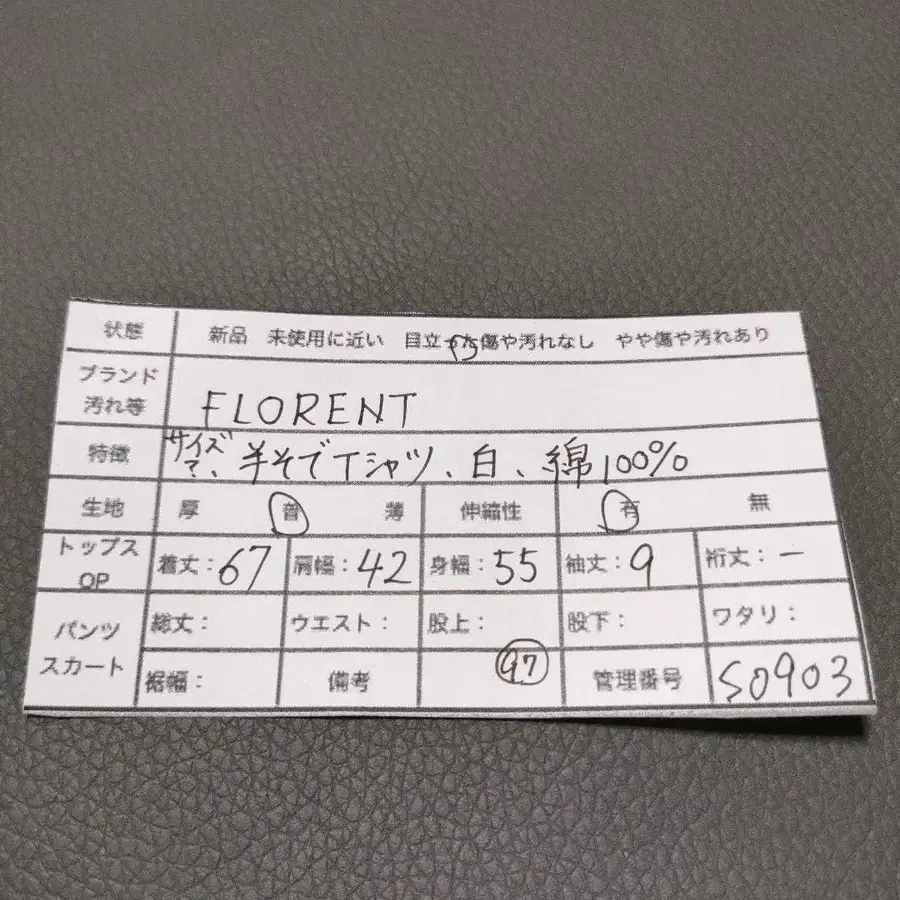 状態 新品 未使用に近い 目立った傷や汚れなし やや傷や汚れあり
ブランド
汚れ等 FLORENT
特徴 サイズ?、半そでTシャツ、白、綿100%
生地 厚 普 薄 伸縮性 有 無
トップス
OP 着丈:67 肩幅:42 身幅:55 袖丈:9 裄丈:ー
パンツ
スカート 総丈: ウエスト: 股上: 股下: ワタリ:
裾幅: 備考 97 管理番号 S0903